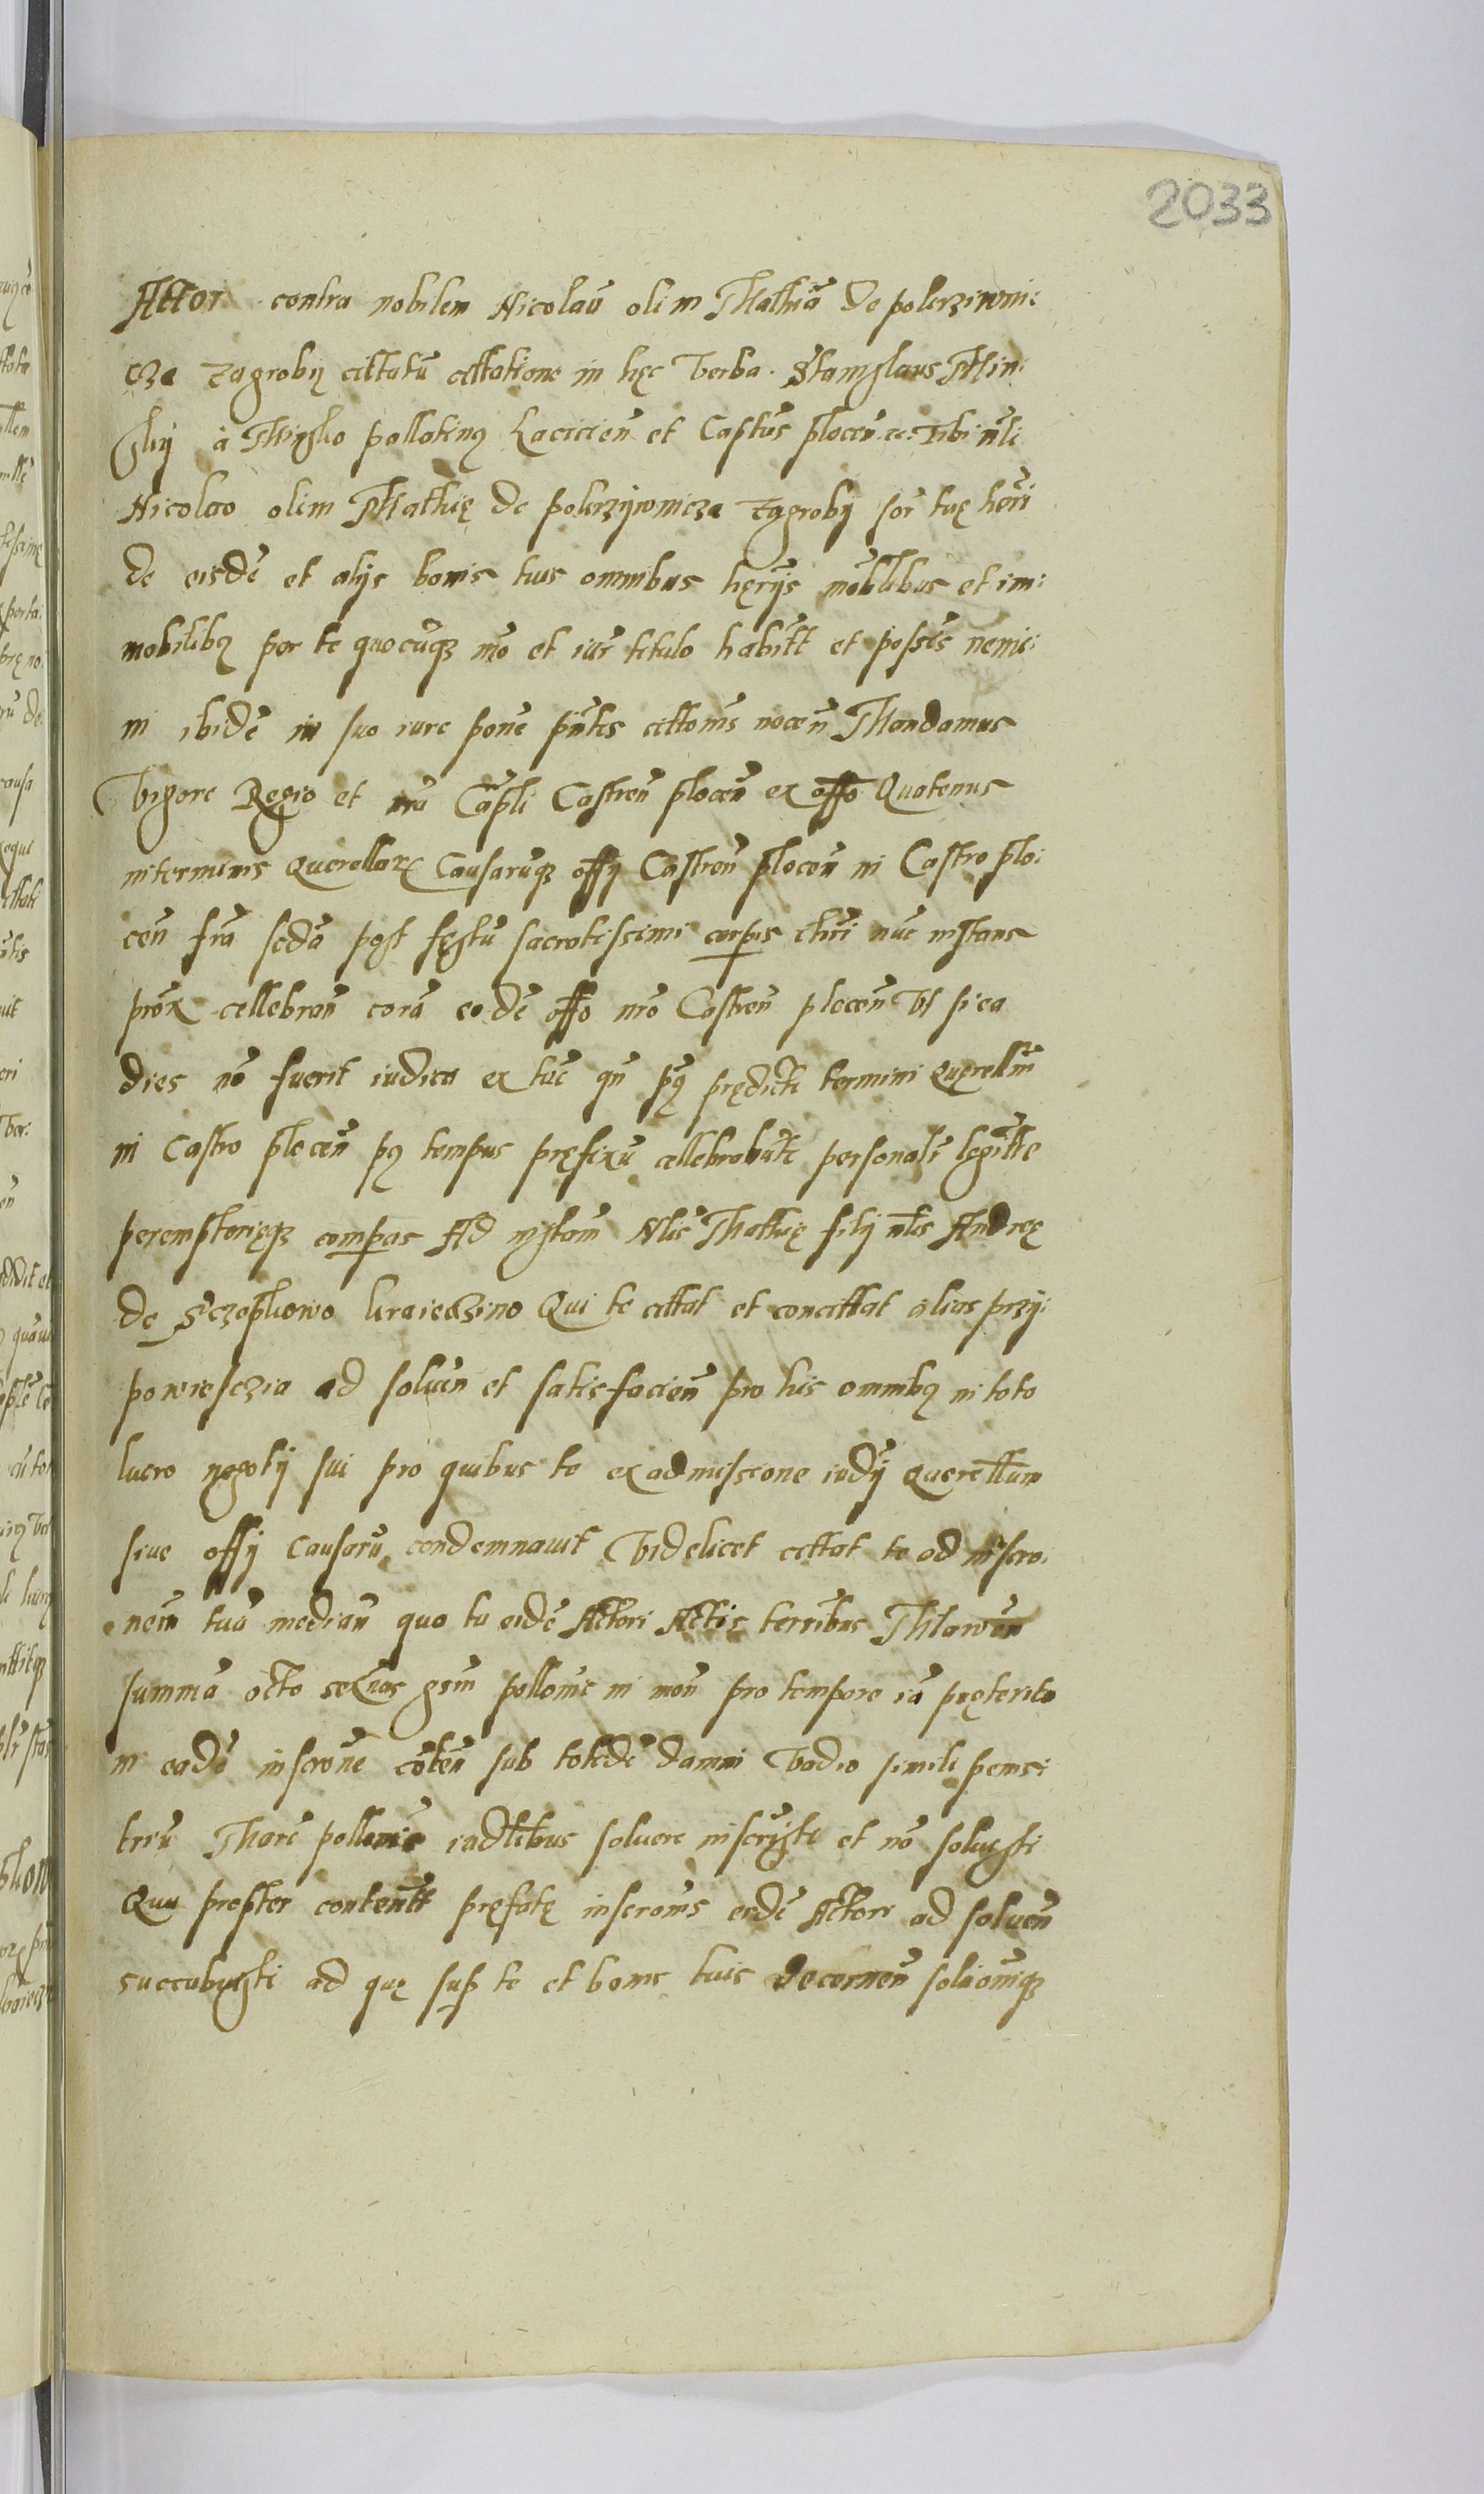 2033
Actor contra nobilem Nicolaū olim Mathiā de pokrzÿwni:
cza zagrobÿ cittatū cittatione in hęc verba. Stanislaus Min:
skÿ à Minsko pallatinꝰ Lancicieñ et Captus̃ ploceñ ec. Tibi nl̃i
Nicolao olim Mathię de pokrzÿwnicza zagrobÿ sor̃ tuę her̃i
de eisdẽ et alÿs bonis tuis omnibus hęrÿs mobl̃ibus et im:
mobilibꝰ per te quocũqꝫ mõ et iur̃ titulo habitt̃ et posses̃ nemi:
ni ibidẽ in suo iure põne pñtis cittonis̃ noceñ Mandamus
Vigore Regio et nrã Capl̃i Castreñ ploceñ ex offõ Quatenus
in terminis Querellarꝝ Causarũqꝫ offÿ Castreñ ploceñ in Castro plo:
ceñ frã scdã post festũ sacratissimi corpis chr̃i nũc instans
prox̃ cellebrañ corã eodẽ offõ nrõ Castreñ ploceñ Vl si ea
dies nõ fuerit iudica ex tũc qñ pꝰ prędicti termini Querellm̃
in Castro ploceñ pꝰ tempus pręfixũ cellebrabũt personalr̃ legittẽ
peremptorięqꝫ compas Ad instañ Nl̃is Mathię filÿ nl̃is Andreę
de Sczepkowo kraieczino Qui te cittat et concittat alias przÿ:
powiesczia ad solueñ et satisfacieñ pro his omnibꝰ in toto
lucro negotÿ sui pro quibus te ex admissione iudÿ Querellm̃
siue offÿ Causarũ condemnauit Videlicet cittat te ad inscro:
nem̃ tuã mediañ qua tu eidẽ Actori Actis terribus̃ Mlaweñ
summã octo sexnas gsm̃ pollonis̃ in moñ pro tempore iã pręterito
in eadẽ inscronẽ cõteñ sub totidẽ damni Vadio simili pensi
triũ Marc̃ pollonis̃ iudl̃ibus soluere inscrpsisti et nõ soluisti
Qua propter contentt̃ pręfatę inscronis̃ eidẽ Actori ad solueñ
succubuisti ad quę sup te et bonis tuis decerneñ soluoniqꝫ